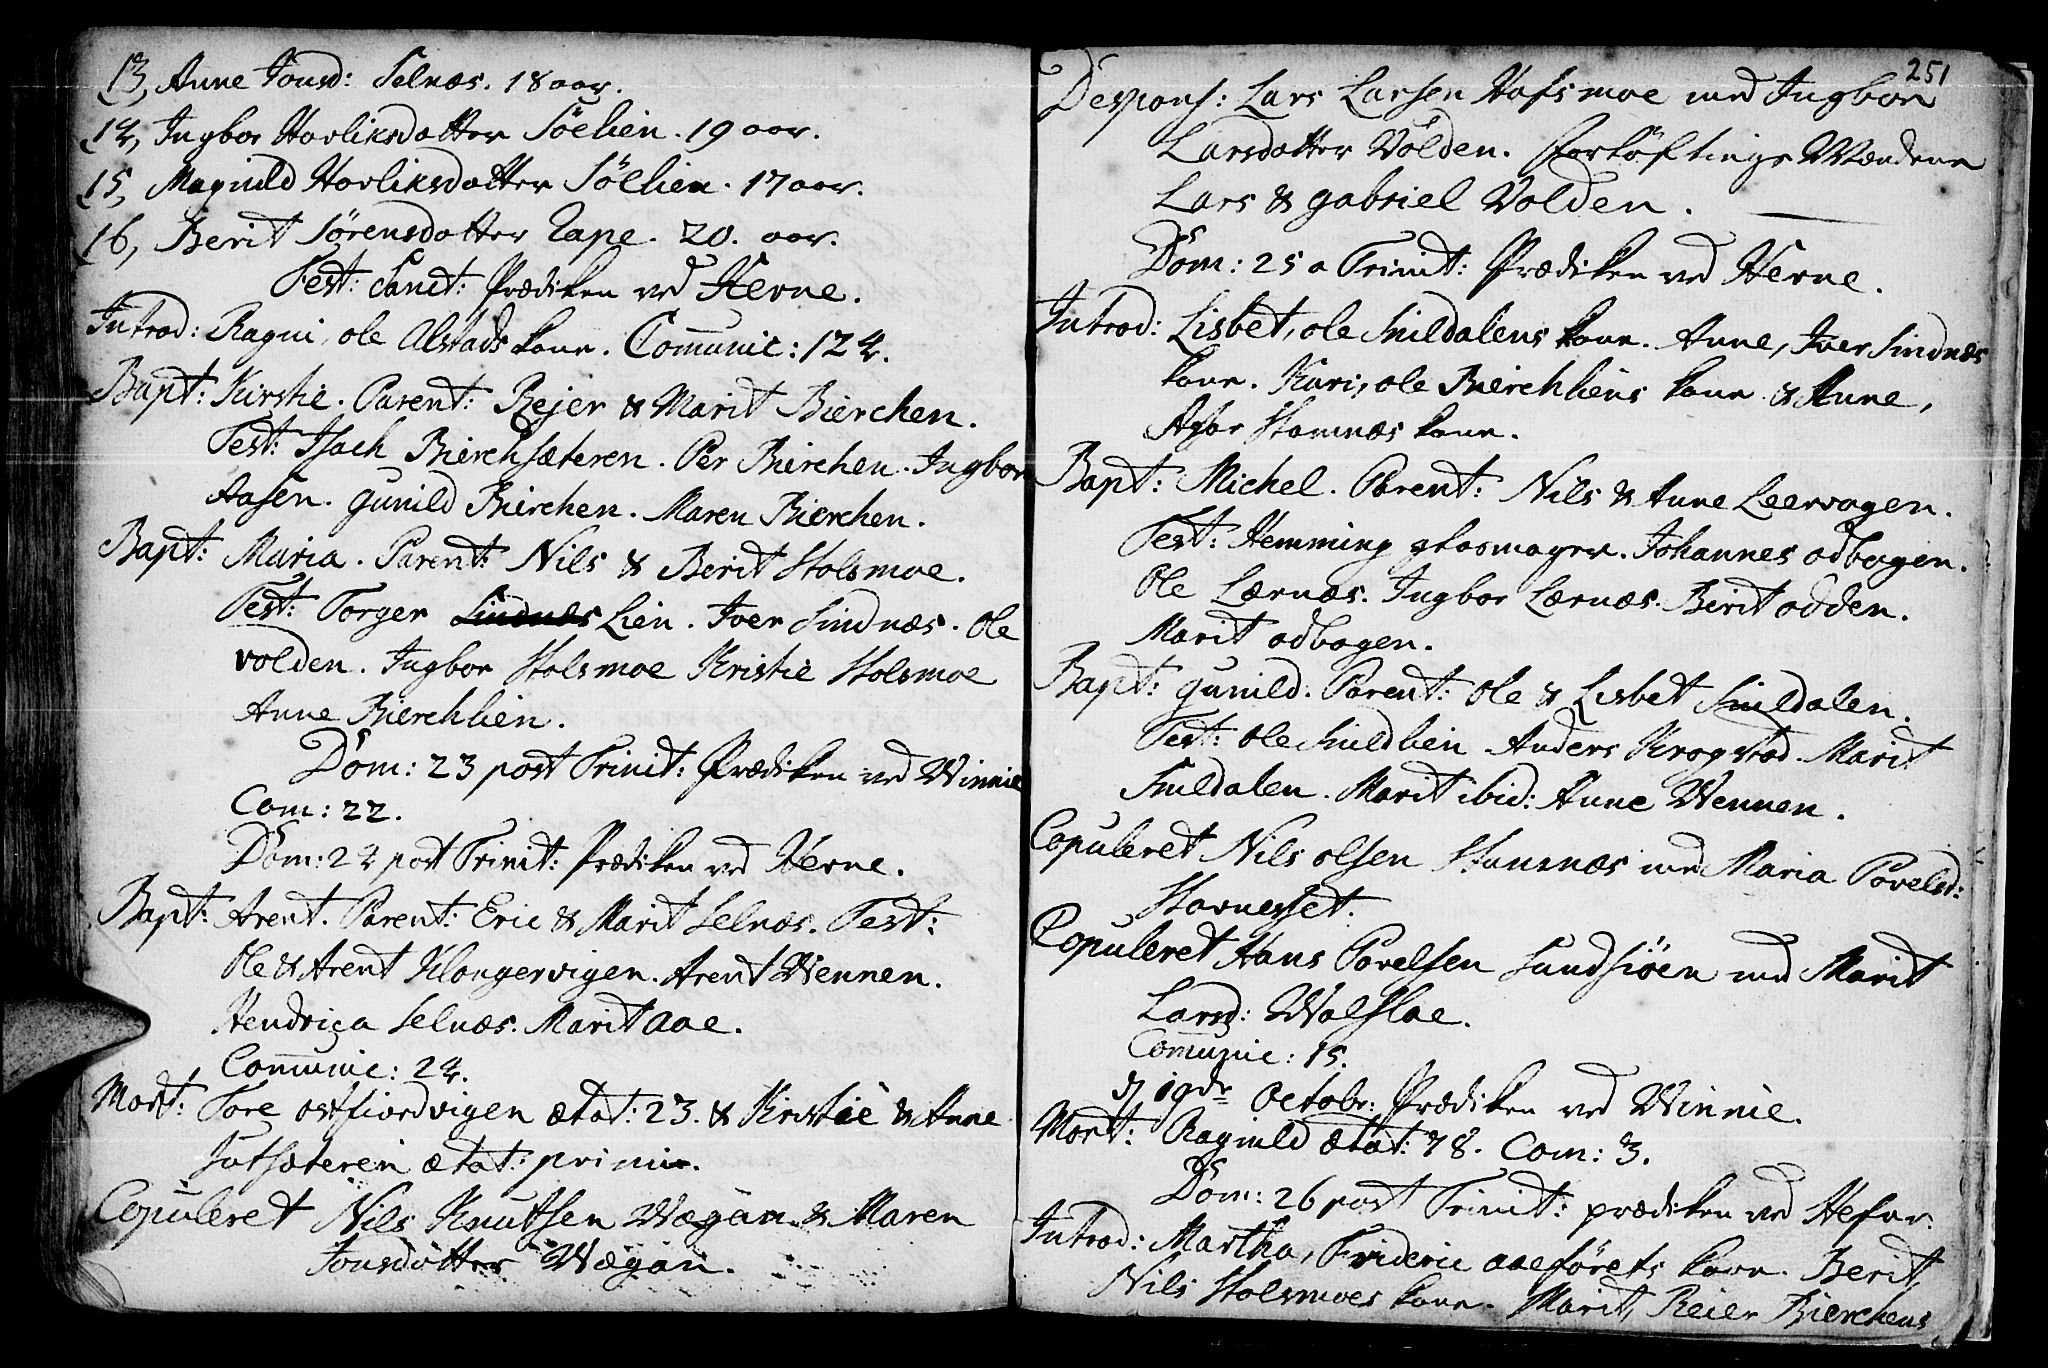 13, Anne Jonsd: Selnæs. 18 aar.
14, Ingbor Havliksdatter Söelien. 19 aar.
15, Magnild Havliksdatter Söelien. 17 aar.
16, Berit Sörensdatter Tape. 20. aar.
Fest: Sanct: Prædiken ved Hevne.
Introd: Ragni, Ole Alstads kone. Comunic: 124.
Bapt: Kirstie. Parent: Rejer & Marit Bierchen.
Test: Isach Bierchsæteren. Per Bierchen. Ingbor
Aasen. Gunild Bierchen. Maren Bierchen.
Bapt: Maria. Parent: Nils & Berit Stolsmoe.
Test: Torger Sindnæs Lien. Iver Sindnæs. Ole
volden. Ingbor Stolsmoe Kristie Stolsmoe
Anne Bierchlien.
Dom: 23 post Trinit: Prædiken ved Winnie
Com: 22.
Dom: 24 post Trinit: Prædiken ved Hevne.
Bapt: Arent. Parent: Eric & Marit Selnæs. Test:
Ole & Arent Klongervigen. Arent Wennen.
Hendriga Selnæs. Marit Aae.
Comunic: 24.
Mort: Tore ostfiordvigen ætat: 23. & Kristie & Anne
Sutsæteren ætat: primi.
Copuleret Nils Knutsen Wægan & Maren
Jonsdatter Wægan.
251
Despons: Lars Larsen Hafsmoe med Ingbor
Larsdatter Volden. Forlöftings Mændene
Lars & Gabriel Volden.
Dom: 25 a Trinit: Prædiken ved Hevne.
Introd: Lisbet, Ole Snildalens kone. Anne, Iver Sindnæs
kone. Kari, Ole Bierchliens kone & Anne,
Asor Stamnæs kone.
Bapt: Michel. Parent: Nils & Anne Leervagen.
Test: Hemming Glasmager. Johannes odbagen.
Ole Lærnæs. Ingbor Lærnæs. Berit odden.
Marit odbogen.
Bapt: Gunild. Parent: Ole & Lisbet Snildalen.
Test: Ole Snildlien Anders Krogstad. Marit
Snildalen. Marit ibid: Anne Wennen.
Copuleret Nils Olsen Stamnæs med Maria Povelsd:
Stavnesset.
Copuleret Hans Povelsen Sundsiöen med Marit
Larsd: Walslae.
Comunic: 15.
d 19de Octobr: Prædiken ved Winnie.
Mort: Ragnild ætat: 78. Com: 3.
Dom: 26 post Trinit: prædiken ved Hefne.
Introd: Martha, Frideric aaeförets kone. Berit,
Nils Stolsmoes kone. Marit, Reier Bierchens